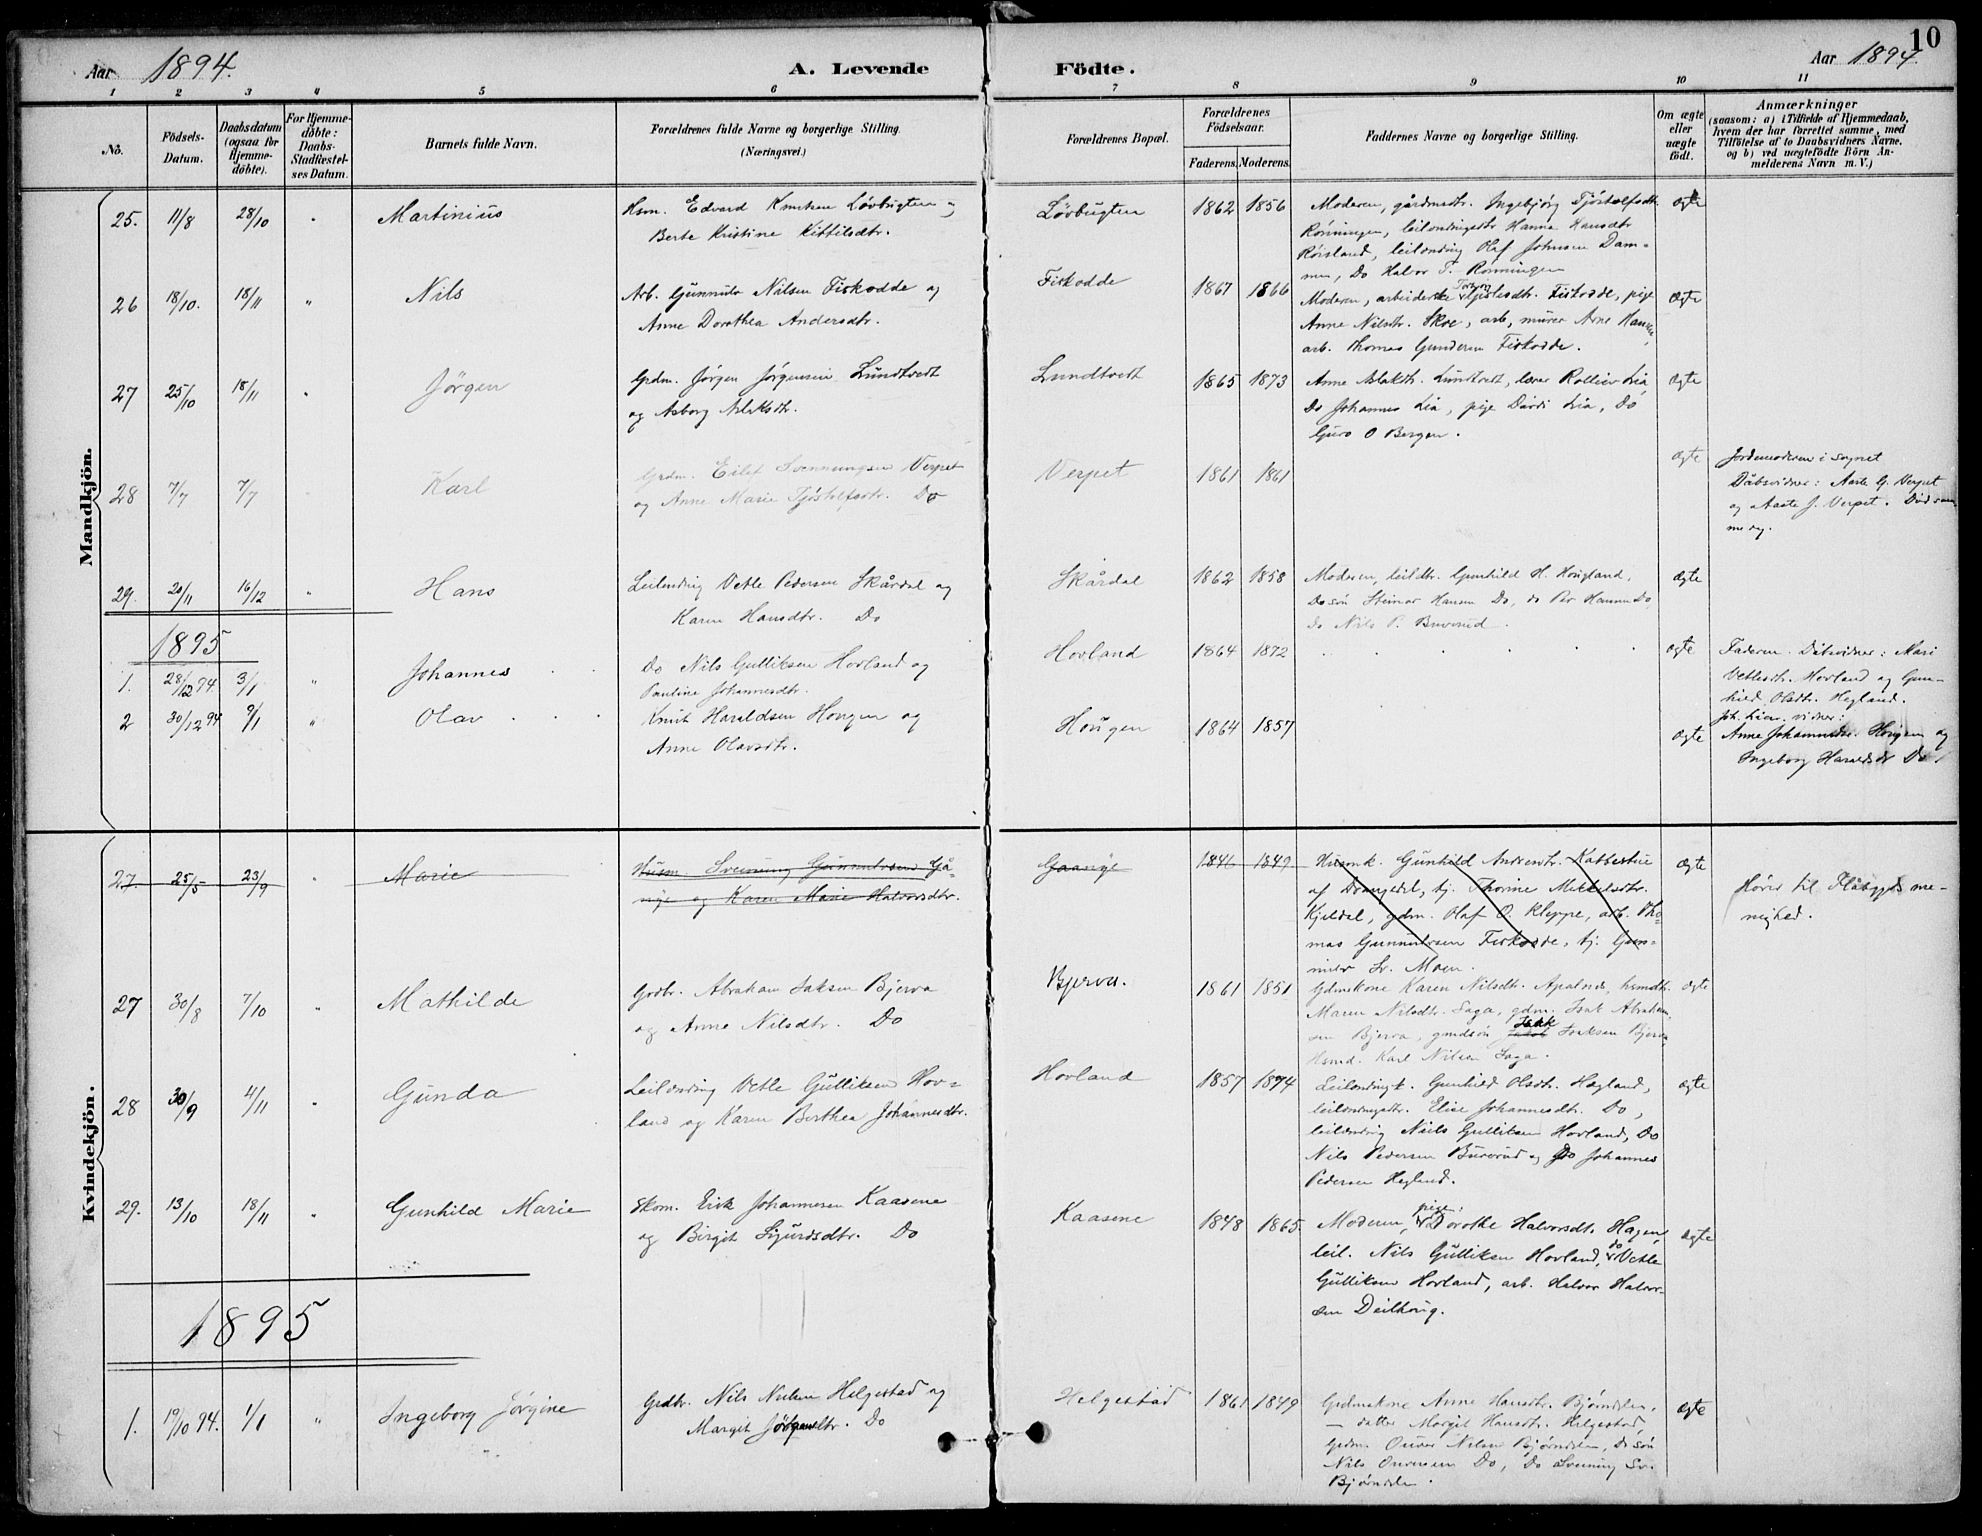 10
Aar 1894.
A. Levende
Födte.
Aar 1894.
1 2 3 4 5 6 7 8 9 10 11
No.
Födsels-
Datum.
Daabsdatum
(ogsaa for
Hjemme-
döbte).
For Hjemme-
döbte:
Daabs-
Stadfæstel-
ses Datum.
Barnets fulde Navn.
Forældrenes fulde Navne og borgerlige Stilling.
(Næringsvei.)
Forældrenes Bopæl.
Forældrenes
Födselsaar.
Faderens. Moderens.
Faddernes Navne og borgerlige Stilling.
Om ægte
eller
uægte
födt.
Anmærkninger
(saasom: a) i Tilfælde af Hjemmedaab,
hvem der har forrettet samme, med
Tilföielse af to Daabsvidners Navne.
og b) ved uægtefödte Börn An-
melderens Navn m. V.)
Mandkjön.
25. 11/8 28/10 " Martinius
Hsm. Edvard Knutsen Lövbugten og
Berte Kristine Kittilsdtr.
Lövbugten 1862 1856
Moderen, gårdmdtr. Ingebjörg Tjöstolfsdtr.
Rönningen, leilendingsdtr Hanna Hansdtr
Röisland, leilending Olaf Johnsen Dam-
men, Do Halvor T. Rönningen
ægte
26 18/10. 18/11 " Nils
Arb. Gunnulv Nilsen Fiskodde og
Anne Dorothea Andersdtr.
Fiskodde 1867 1866
Moderen, arbeiderske Gislesdtr. Fiskodde, pige
Anne Nilsdtr. Skoe, arb, murer Arne Hansen,
arb. Thomas Gundersen Fiskodde.
ægte
27 25/10 18/11 " Jörgen
Grdm. Jörgen Jörgensen Lundtvedt
og Asborg Aslaksdtr.
Lundtvedt 1865 1873
Anne Aslaksdtr. Lundtvedt, lærer Rolleiv Lia
Do Johannes Lia, pige Dardi Lia, Do
Guro O Bergen.
ægte
28 7/7 7/7 Karl
Grdm. Eilef Svennungsen Verpet
og Anne Marie Tjöstolfsdtr. Do
Verpet 1861 1861
ægte
Jordemoderen i sognet
Dåbsvidner: Aaste G. Verpet
og Aaste J. Verpet. Död sam-
me dag.
29. 20/11 16/12 " Hans
Leilending Vetle Pedersen Skårdal og
Karen Hansdtr. Do
Skårdal 1862 1858
Moderen, leildtr. Gunhild H. Hougland,
Do sön Steinar Hansen Do, do Per Hansen Do,
do Nils P. Buverud.
ægte
1895
1. 28/12 94 3/1 " Johannes
Do Nils Gulliksen Hovland og
Pauline Johannesdtr.
Hovland 1864 1872
ægte
Faderen. Dåbsvidner: Mari
Vetlesdtr. Hovland og Gun-
hild Olsdtr. Hegland.
2 30/12 94 9/1 " Olav
Knut Haraldsen Hougen og
Anne Olavsdtr.
Hougen 1864 1857
ægte
Joh. Lia. vidner:
Anne Johannesdtr. Hougen og
Ingeborg Haraldsdtr Do.
Kvindekjön.
27. 25/5 23/9 " Marie
Husm. Sveinung Gunnulvsen Gå-
nöje og Karen Marie Halvorsdtr.
Gaanöje 1846 1849
Husmk. Gunhild Andersdtr. Kabbestue
af Drangedal, tj. Thorine Mikkelsdtr.
Kjeldal, gdm. Olaf O. Kleppe, arb. Tho-
mas Gunnulvsen Fiskodde, tj. Gun-
nulv Sv. Moen.
ægte
Hörer til Flåbygds me-
nighed.
27 30/8 7/10 " Mathilde
Grdbr. Abraham Isaksen Bjerva
og Anne Nilsdtr. Do
Bjerva. 1861 1851
Gdmskone Karen Nilsdtr. Apalnæs, hsmdtr.
Maren Nilsdtr. Saga, gdm. Isak Abraham-
sen Bjerva, gmdsön Isak Isaksen Bjerva,
Hsmd. Karl Nilsen Saga.
ægte
28 30/9 4/11 " Gunda
Leilending Vetle Gulliksen Hov-
land og Karen Berthea Johannesdtr.
Hovland 1857 1874
Leilendingk. Gunhild Olsdtr. Hægland,
leilendingsdtr. Elise Johannesdtr. Do,
leilending Nils Gulliksen Hovland, Do
Nils Pedersen Buverud og Do Johannes
Pedersen Hegland.
ægte
29. 13/10 18/11 " Gunhild Marie
Skom. Erik Johannesen Kaasene
og Birgit Sigurdsdtr. Do
Kaasene 1848 1865.
pige:
Moderen, Dorothe Halvorsdt. Hagen,
leil. Nils Gulliksen Hovland, do Vetle
Gulliksen Hovland, arb. Halvor Halvor-
sen Deilhoug.
ægte
1895
1. 19/10 94. 1/1 " Ingeborg Jörgine
Grdbr. Nils Nilsen Helgestad og
Margit Jörgensdtr. Do
Helgestad 1861 1849
Grdmskone Anne Hansdtr. Bjørndalen,
— datter Margit Hansdtr. Helgestad,
Grdm. Ouver Nilsen Bjørndalen, Do sön
Nils Ouversen Do, Do Sveinung Sv.
Bjørndalen.
ægte